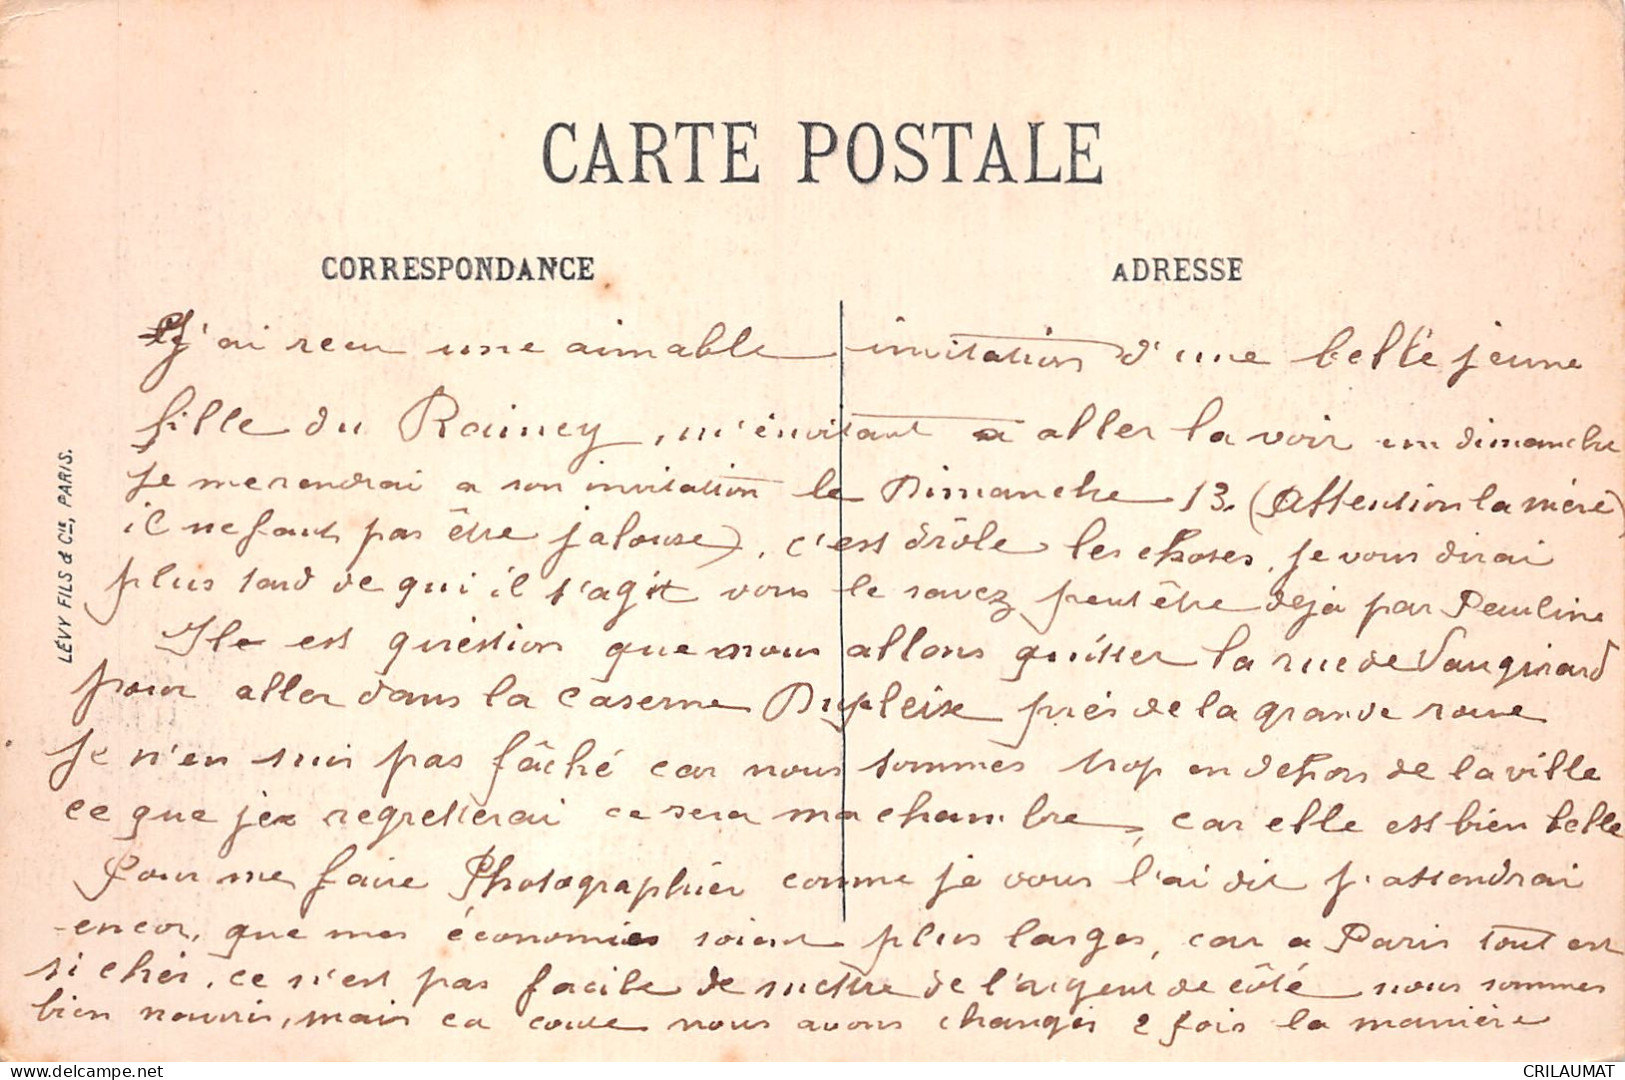 CARTE POSTALE
CORRESPONDANCE
ADRESSE
J'ai recu une aimable invitation d'une belle jeune
fille du Raincy, m'invitant a aller la voir un dimanche
je me rendrai a son invitation le Dimanche 13. (Attention la mère
il ne faut pas être jalouse), c'est drôle les choses, je vous dirai
plus tard de qui il s'agit vous le savez peut être deja par Pauline
Il est question que nous allons quitter la rue de Vaugirard
pour aller dans la caserne Dupleix près de la grande roue
Je n'en suis pas fâché car nous sommes trop en dehors de la ville
ce que je regretterai ce sera ma chambre, car elle est bien belle
Pour me faire Photographier comme je vous l'ai dit j'attendrai
encor, que mes économies soient plus larges, car a Paris tout est
si cher, ce n'est pas facile de mettre de l'argent de côté nous sommes
bien nourris, mais ca coute nous avons changés 2 fois la manière
LÉVY FILS & Cie, PARIS.
delcampe.net
CRILAUMAT